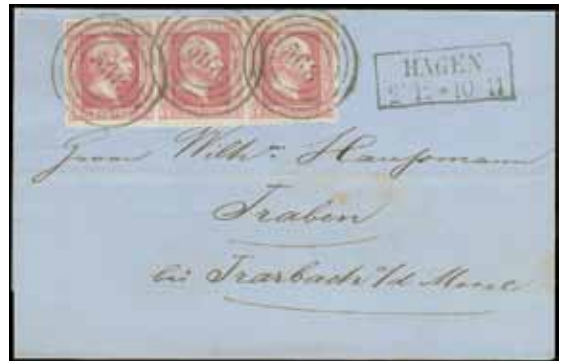 HAGEN
2 12 * 10 11
Herrn Wilh. Haussmann
Traben
bei Trarbach a/d Mosel